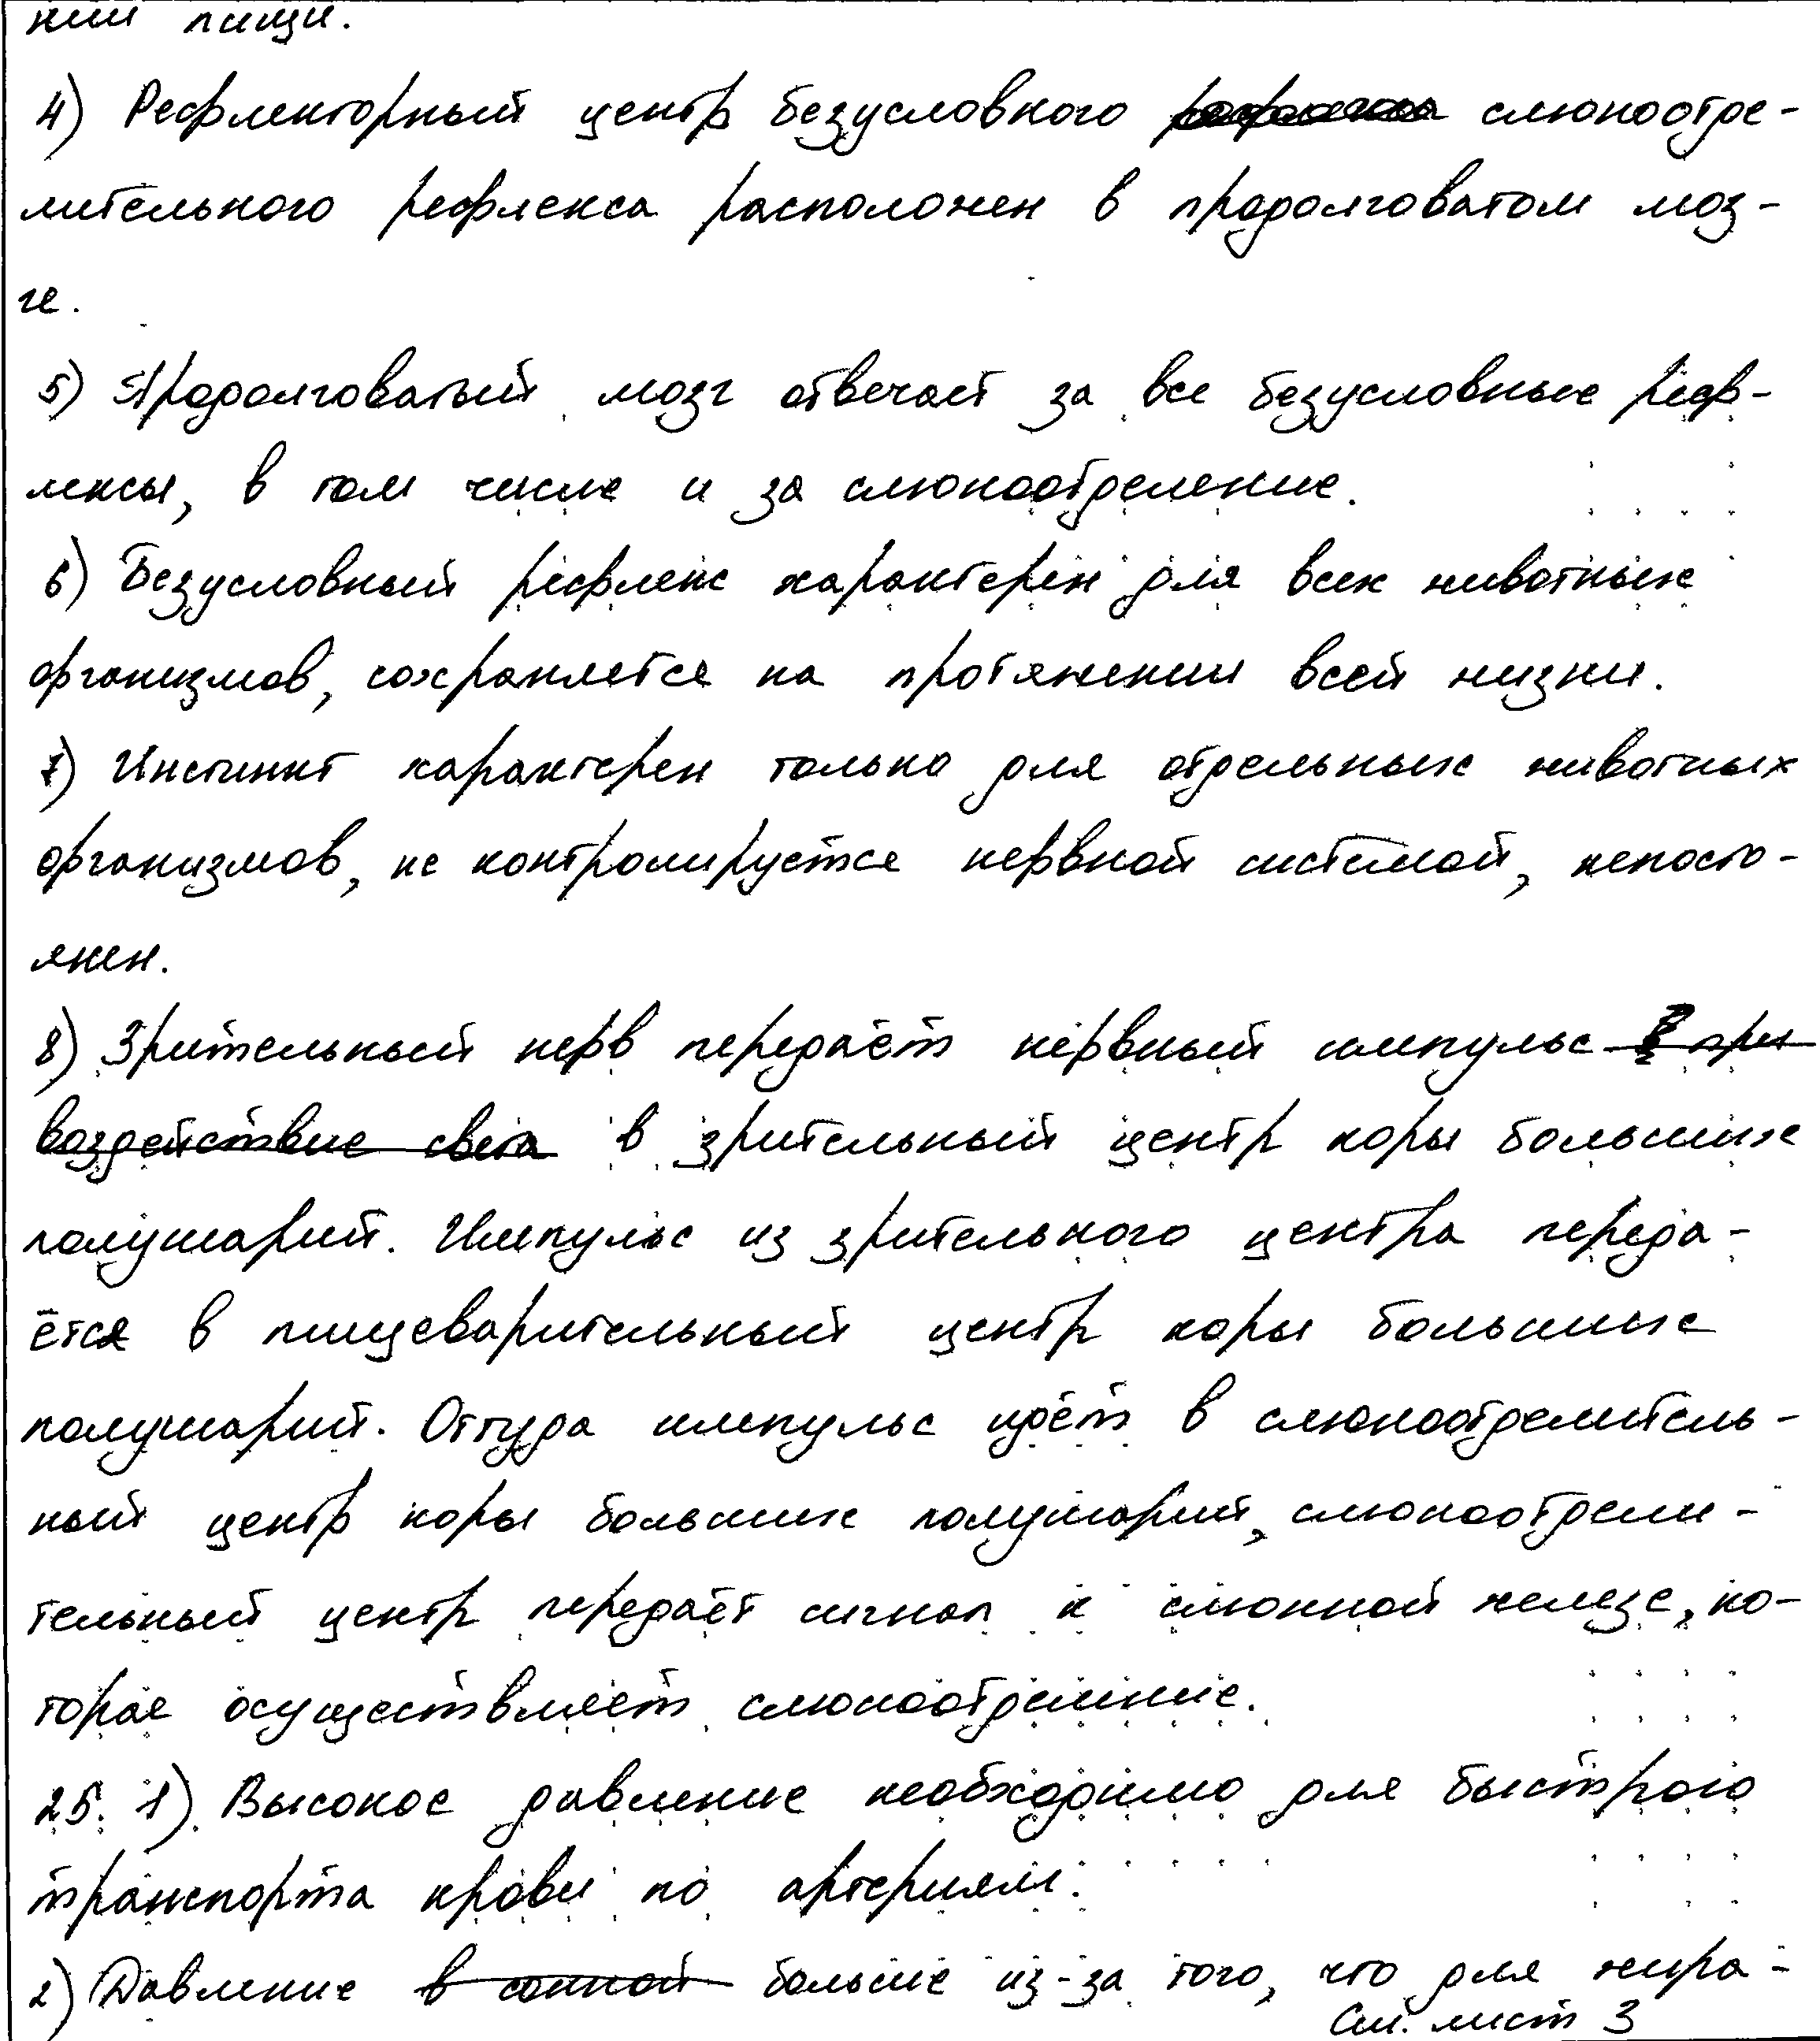 нии пищи.
4) Рефлекторный центр безусловного слюноотде-
лительного рефлекса расположен в продолговатом моз-
ге.
5) Продолговатый мозг отвечает за все безусловные реф-
лексы, в том числе и за слюноотделение.
6) Безусловный рефлекс характерен для всех животных
организмов, сохраняется на протяжении всей жизни.
7) Инстинкт характерен только для отдельных животных
организмов, не контролируется нервной системой, непосто-
янен.
8) Зрительный нерв передаёт нервный импульс в при
воздействие света в зрительный центр коры больших
полушарий. Импульс из зрительного центра переда-
ётся в пищеварительный центр коры больших
полушарий. Оттуда импульс идёт в слюноотделитель-
ный центр коры больших полушарий, слюноотдели-
тельный центр передаёт сигнал к слюнной железе, ко-
торая осуществляет слюноотделение.
25. 1) Высокое давление необходимо для быстрого
транспорта крови по артериям.
2) Давление в сонной больше из-за того, что для жира-
См. лист 3